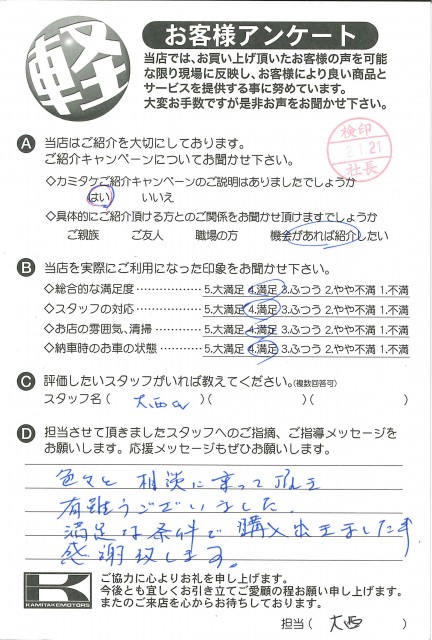 軽
お客様アンケート
当店では、お買い上げ頂いたお客様の声を可能
な限り現場に反映し、お客様により良い商品と
サービスを提供する事に努めています。
大変お手数ですが是非お声をお聞かせ下さい。
検印
2.1.21
社長
A 当店はご紹介を大切にしております。
ご紹介キャンペーンについてお聞かせ下さい。
◇カミタケご紹介キャンペーンのご説明はありましたでしょうか
はい いいえ
◇具体的にご紹介頂ける方とのご関係をお聞かせ頂けますでしょうか
ご親族 ご友人 職場の方 機会があれば紹介したい
B 当店を実際にご利用になった印象をお聞かせ下さい。
◇総合的な満足度 …………… 5.大満足 4.満足 3.ふつう 2.やや不満 1.不満
◇スタッフの対応 …………… 5.大満足 4.満足 3.ふつう 2.やや不満 1.不満
◇お店の雰囲気、清掃 ……… 5.大満足 4.満足 3.ふつう 2.やや不満 1.不満
◇納車時のお車の状態 ……… 5.大満足 4.満足 3.ふつう 2.やや不満 1.不満
C 評価したいスタッフがいれば教えてください。(複数回答可)
スタッフ名 ( 大西 )( )( )
D 担当させて頂きましたスタッフへのご指摘、ご指導メッセージを
お願いします。応援メッセージもぜひお願いします。
色々と相談に乗って
有難うございました。
満足な条件で購入出来ました
感謝致します。
K
KAMITAKEMOTORS
ご協力に心よりお礼を申し上げます。
今後とも宜しくお引き立てご愛顧の程お願い申し上げます。
またのご来店を心からお待ちしております。
担当 ( 大西 )